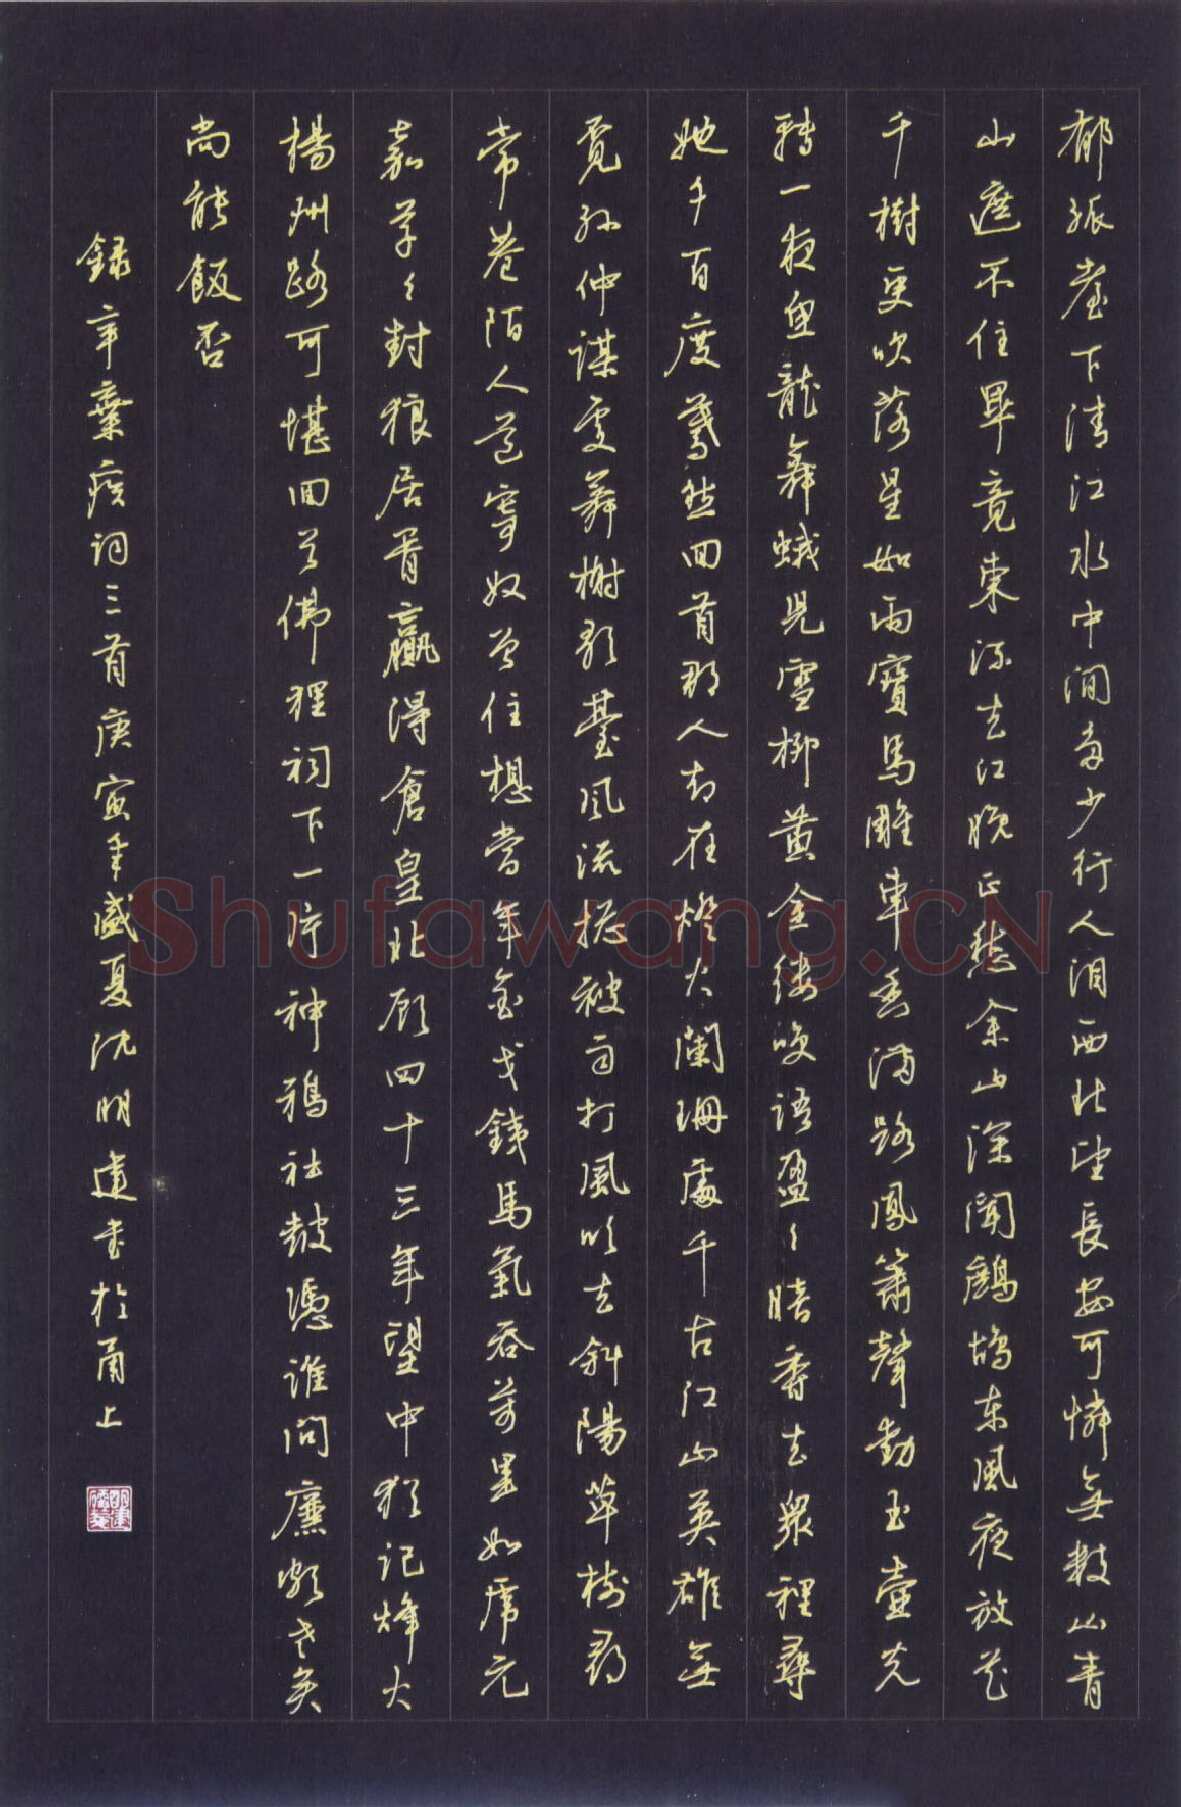 郁孤臺下清江水中間多少行人淚西北望長安可憐無數山青
山遮不住畢竟東流去江晚正愁余山深聞鷓鴣東風夜放花
千樹更吹落星如雨寶馬雕車香滿路鳳簫聲動玉壺光
轉一夜魚龍舞蛾兒雪柳黃金縷笑語盈々暗香去眾裡尋
她千百度驀然回首那人却在燈火闌珊處千古江山英雄無
覓孫仲謀處舞榭歌臺風流總被雨打風吹去斜陽草樹尋
常巷陌人道寄奴曾住想當年金戈鐵馬氣吞萬里如虎元
嘉草々封狼居胥贏得倉皇北顧四十三年望中猶記烽火
楊州路可堪回首佛狸祠下一片神鴉社鼓憑誰問廉頗老矣
尚能飯否
錄辛棄疾詞三首庚寅年盛夏沈明遠書於甬上
Shufawang.CN